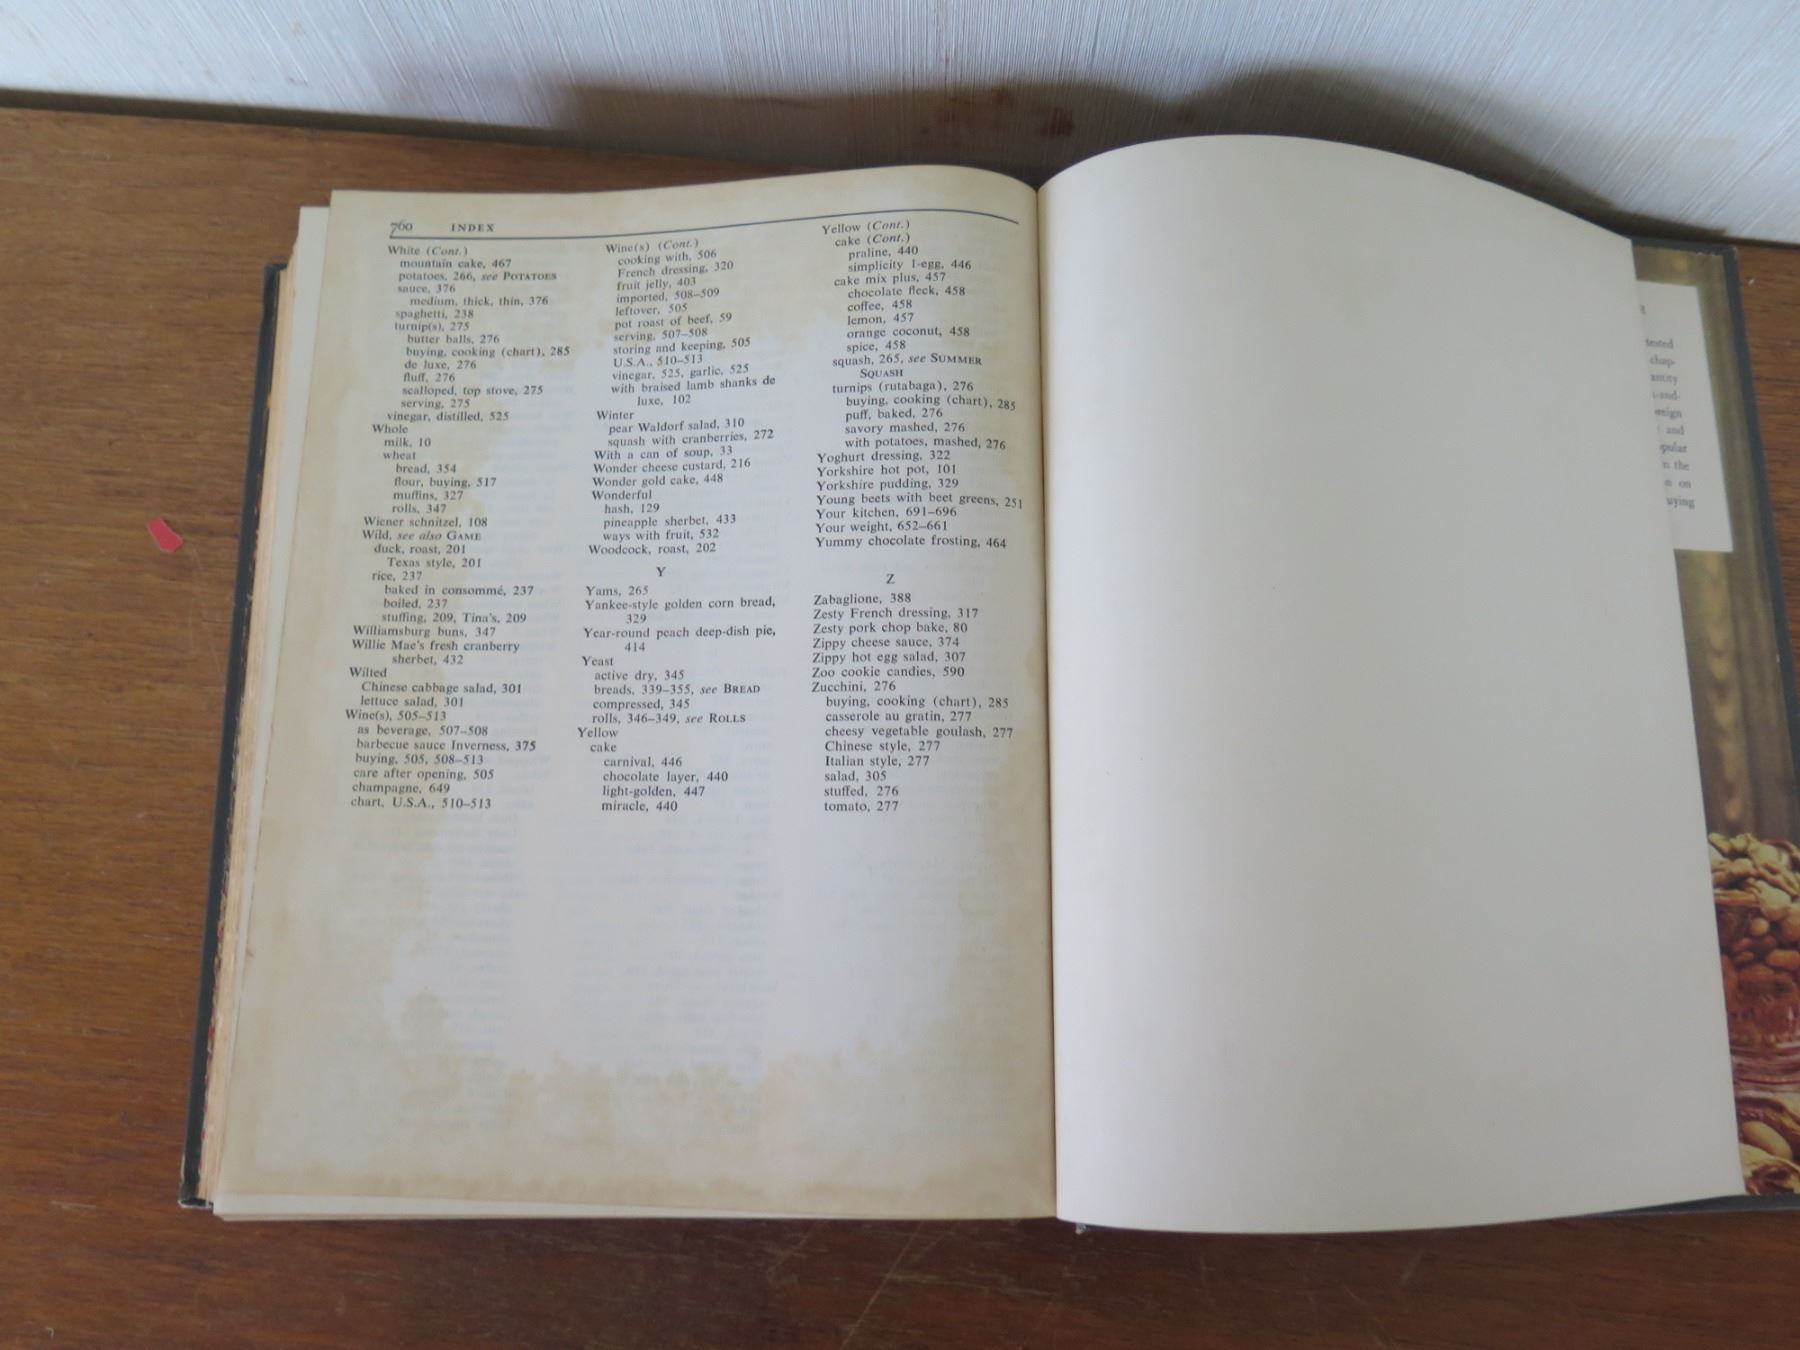 760 INDEX
White (Cont.)
mountain cake, 467
potatoes, 266, see POTATOES
sauce, 376
medium, thick, thin, 376
spaghetti, 238
turnip(s), 275
butter balls, 276
buying, cooking (chart), 285
de luxe, 276
fluff, 276
scalloped, top stove, 275
serving, 275
vinegar, distilled, 525
Whole
milk, 10
wheat
bread, 354
flour, buying, 517
muffins, 327
rolls, 347
Wiener schnitzel, 108
Wild, see also GAME
duck, roast, 201
Texas style, 201
rice, 237
baked in consommé, 237
boiled, 237
stuffing, 209, Tina's, 209
Williamsburg buns, 347
Willie Mae's fresh cranberry
sherbet, 432
Wilted
Chinese cabbage salad, 301
lettuce salad, 301
Wine(s), 505–513
as beverage, 507–508
barbecue sauce Inverness, 375
buying, 505, 508–513
care after opening, 505
champagne, 649
chart, U.S.A., 510–513
Wine(s) (Cont.)
cooking with, 506
French dressing, 320
fruit jelly, 403
imported, 508–509
leftover, 505
pot roast of beef, 59
serving, 507–508
storing and keeping, 505
U.S.A., 510–513
vinegar, 525, garlic, 525
with braised lamb shanks de
luxe, 102
Winter
pear Waldorf salad, 310
squash with cranberries, 272
With a can of soup, 33
Wonder cheese custard, 216
Wonder gold cake, 448
Wonderful
hash, 129
pineapple sherbet, 433
ways with fruit, 532
Woodcock, roast, 202
Y
Yams, 265
Yankee-style golden corn bread,
329
Year-round peach deep-dish pie,
414
Yeast
active dry, 345
breads, 339–355, see BREAD
compressed, 345
rolls, 346–349, see ROLLS
Yellow
cake
carnival, 446
chocolate layer, 440
light-golden, 447
miracle, 440
Yellow (Cont.)
cake (Cont.)
praline, 440
simplicity 1-egg, 446
cake mix plus, 457
chocolate fleck, 458
coffee, 458
lemon, 457
orange coconut, 458
spice, 458
squash, 265, see SUMMER
SQUASH
turnips (rutabaga), 276
buying, cooking (chart), 285
puff, baked, 276
savory mashed, 276
with potatoes, mashed, 276
Yoghurt dressing, 322
Yorkshire hot pot, 101
Yorkshire pudding, 329
Young beets with beet greens, 251
Your kitchen, 691–696
Your weight, 652–661
Yummy chocolate frosting, 464
Z
Zabaglione, 388
Zesty French dressing, 317
Zesty pork chop bake, 80
Zippy cheese sauce, 374
Zippy hot egg salad, 307
Zoo cookie candies, 590
Zucchini, 276
buying, cooking (chart), 285
casserole au gratin, 277
cheesy vegetable goulash, 277
Chinese style, 277
Italian style, 277
salad, 305
stuffed, 276
tomato, 277
and
the
on